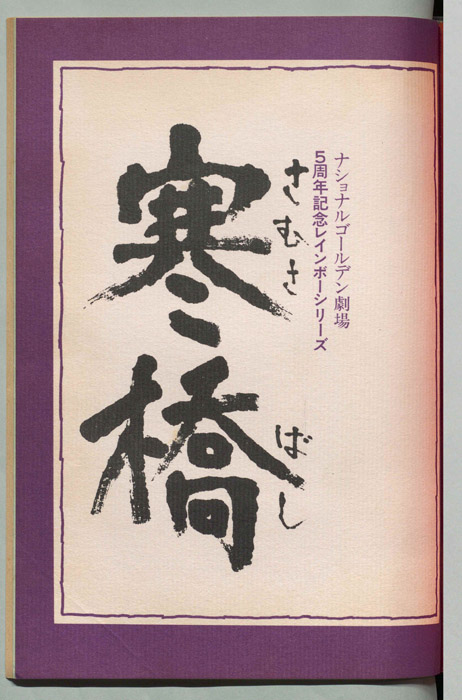 ナショナルゴールデン劇場
5周年記念レインボーシリーズ
さむさばし
寒橋